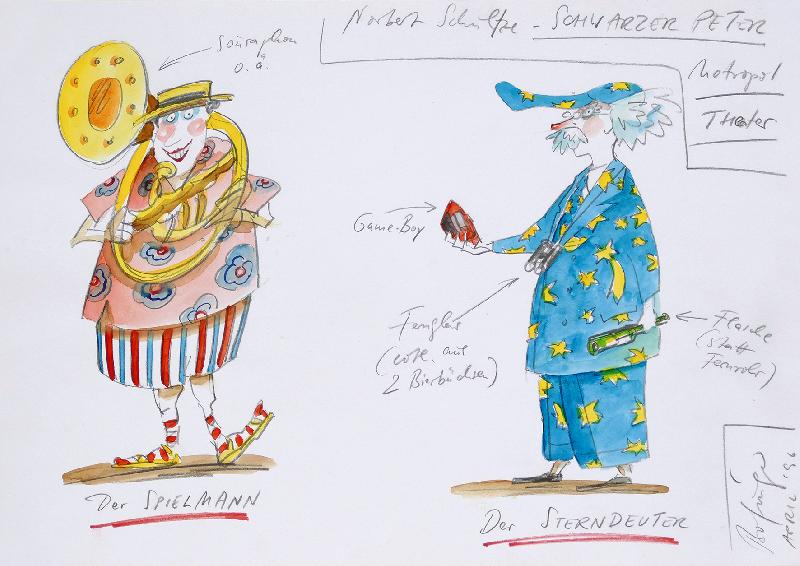 Norbert Schultze - SCHWARZER PETER
Metropol
THEATER
Sousaphon
o.ä.
Game-Boy
Fernglas
(evtl. aus
2 Bierbüchsen)
Flasche
(statt
Fernrohr)
Der SPIELMANN
Der STERNDEUTER
APRIL '96